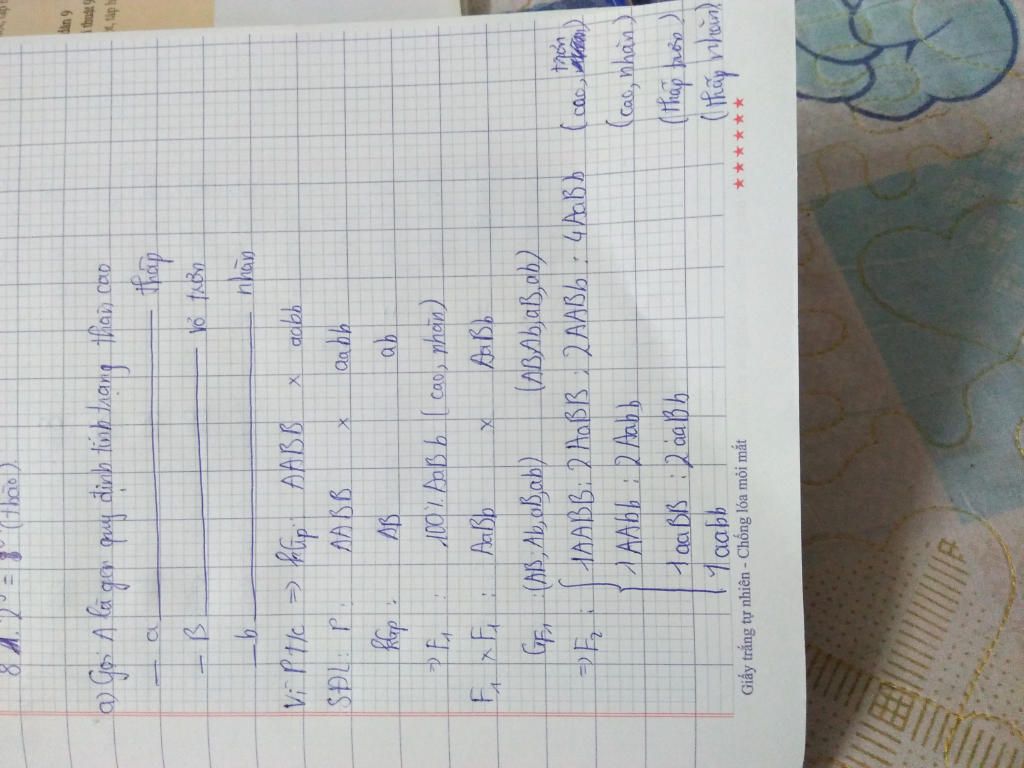 8 2 = 8 (thảo)
a) Gọi A là gen quy định tính trạng thân cao
— a ——— thấp
— B ——— vỏ trơn
— b ——— nhăn
Vì P t/c ⇒ AABB × aabb
SĐL: P: AABB × aabb
AB ab
⇒ F₁: 100% AaBb (cao, nhăn)
F₁ × F₁: AaBb × AaBb
GF₁: (AB, Ab, aB, ab) (AB, Ab, aB, ab)
⇒ F₂: 1AABB : 2AaBB : 2AABb : 4AaBb (cao, trơn)
1AAbb : 2Aabb (cao, nhăn)
1aaBB : 2aaBb (thấp trơn)
1aabb (thấp nhăn)
Giấy trắng tự nhiên - Chống lóa mỏi mắt